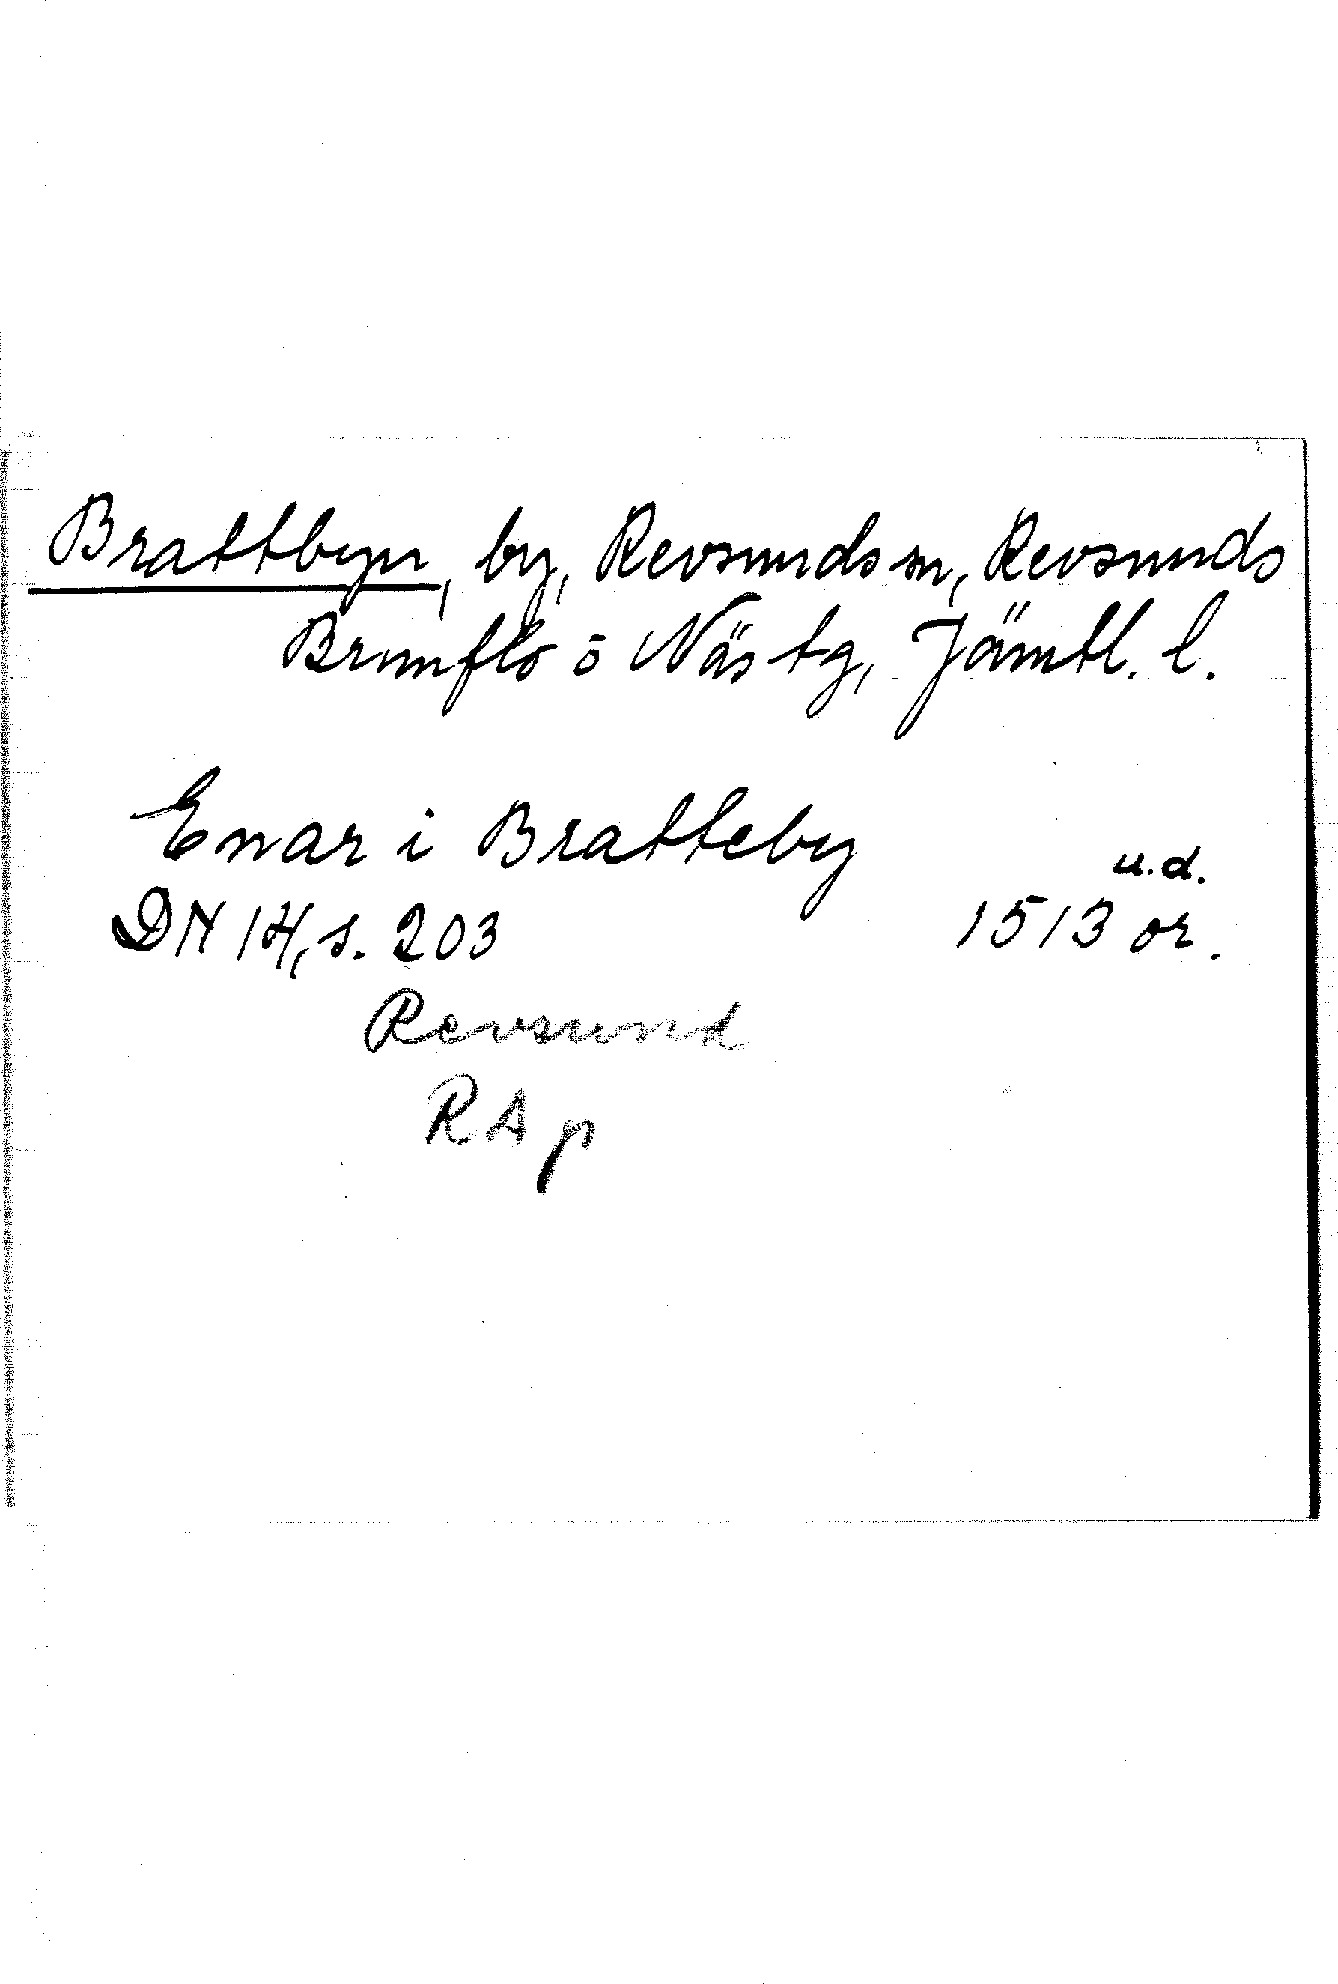 Brattbyn, by, Revsunds sn, Revsunds
Brunflo o Näs tg, Jämtl. l.
Enar i Bratteby
u.d.
DN 14, s. 203 1513 or.
Revsund
RA p